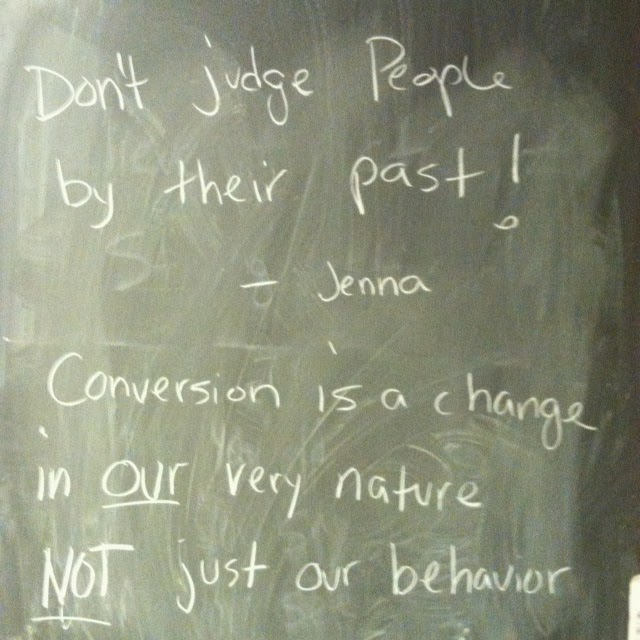 Don't judge People
by their past!
- Jenna
Conversion is a change
in our very nature
NOT just our behavior